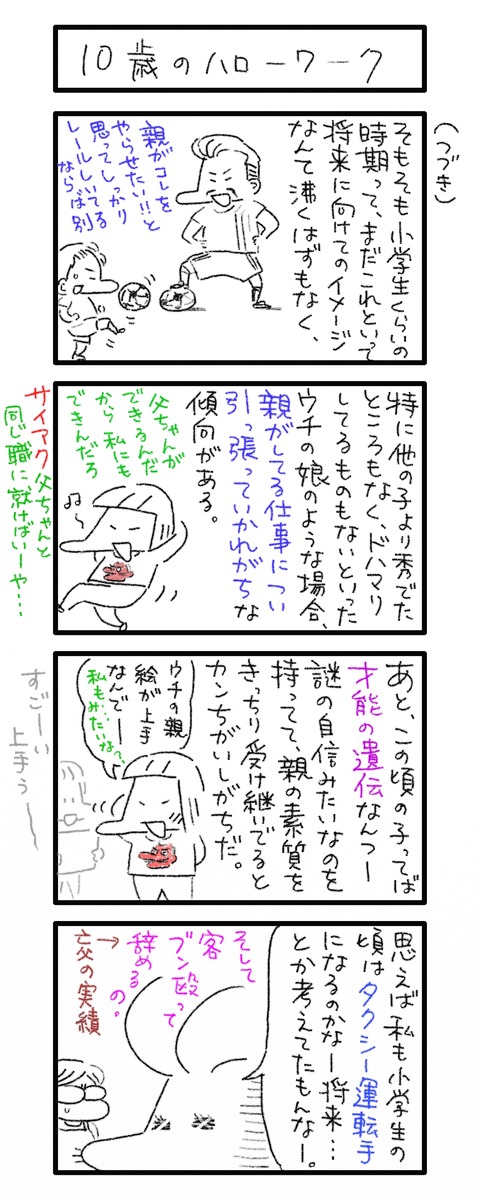 10歳のハローワーク
（つづき）
そもそも小学生くらいの
時期って、まだこれといって
将来に向けてのイメージ
なんて沸くはずもなく、
親がコレを
やらせたい!!と
思ってしっかり
レールしいてる
ならば別
特に他の子より秀でた
ところもなく、ドハマり
してるものもないといった
ウチの娘のような場合、
親がしてる仕事につい
引っ張っていかれがちな
傾向がある。
父ちゃんが
できるんだ
から私にも
できんだろ
サイアク父ちゃんと
同じ職に就けばいーや…
♫〜
あと、この頃の子ってば
才能の遺伝なんつー
謎の自信みたいなのを
持ってて、親の素質を
きっちり受け継いでると
カンちがいしがちだ。
ウチの親
絵が上手
なんでー
私もみたいな?
すごーい
上手うー
思えば私も小学生の
頃はタクシー運転手
になるのかなー将来…
とか考えてたもんなー。
そして
客
ブン殴って
辞めるの。
→亡父の実績